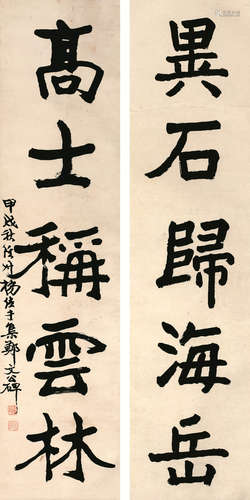 異石歸海岳
高士稱雲林
甲戌秋徐州楊佐于集鄭文公碑